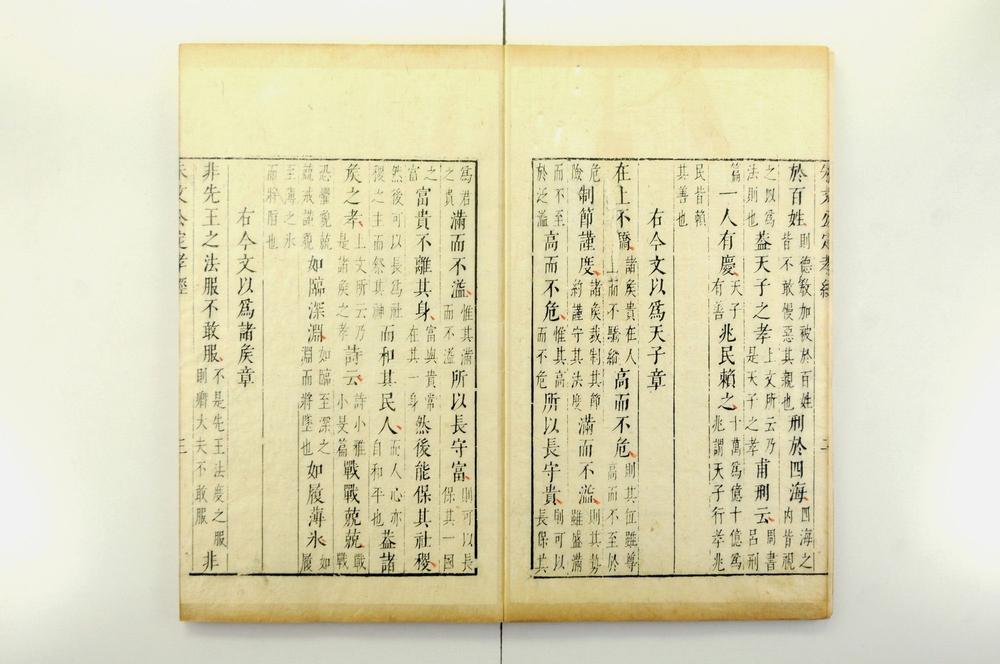 朱文公定孝經 二
於百姓則德敎加被於百姓皆不敢慢惡其親也刑於四海四海之内皆視
之以爲法則也蓋天子之孝上文所云乃是天子之孝甫刑云周書呂刑
篇一人有慶天子有善兆民賴之十萬爲億十億爲兆謂天子行孝兆
民皆賴其善也
右今文以爲天子章
在上不驕諸矦貴在人上而不驕縱高而不危則其位雖尊高而不至於
危險制節謹度諸矦裁制其節約謹守其法度滿而不溢則其勢雖盛滿
而不至於泛濫高而不危惟其高而不危所以長守貴則可以長保其
爲君之貴滿而不溢惟其滿而不溢所以長守富則可以長保其一國
之富富貴不離其身富與貴常在其一身然後能保其社稷
然後可以長爲社稷之主而祭其神而和其民人而人心亦自和平也蓋諸
矦之孝上文所云乃是諸矦之孝詩云詩小雅小旻篇戰戰兢兢戰戰
恐懼兢兢戒謹如臨深淵如臨至深之淵而將墜也如履薄氷如履
至薄之氷而將陷也
右今文以爲諸矦章
非先王之法服不敢服不是先王法度之服則卿大夫不敢服非
朱文公定孝經 三